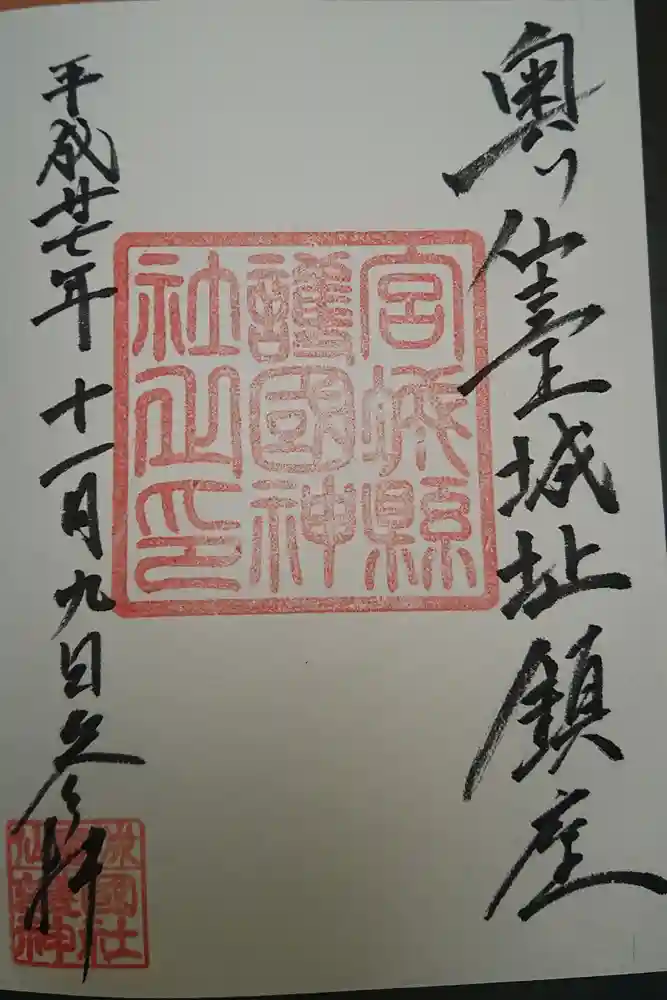 奥仙臺城址鎮座
宮城縣
護國神
社之印
平成廿七年十一月九日参拝